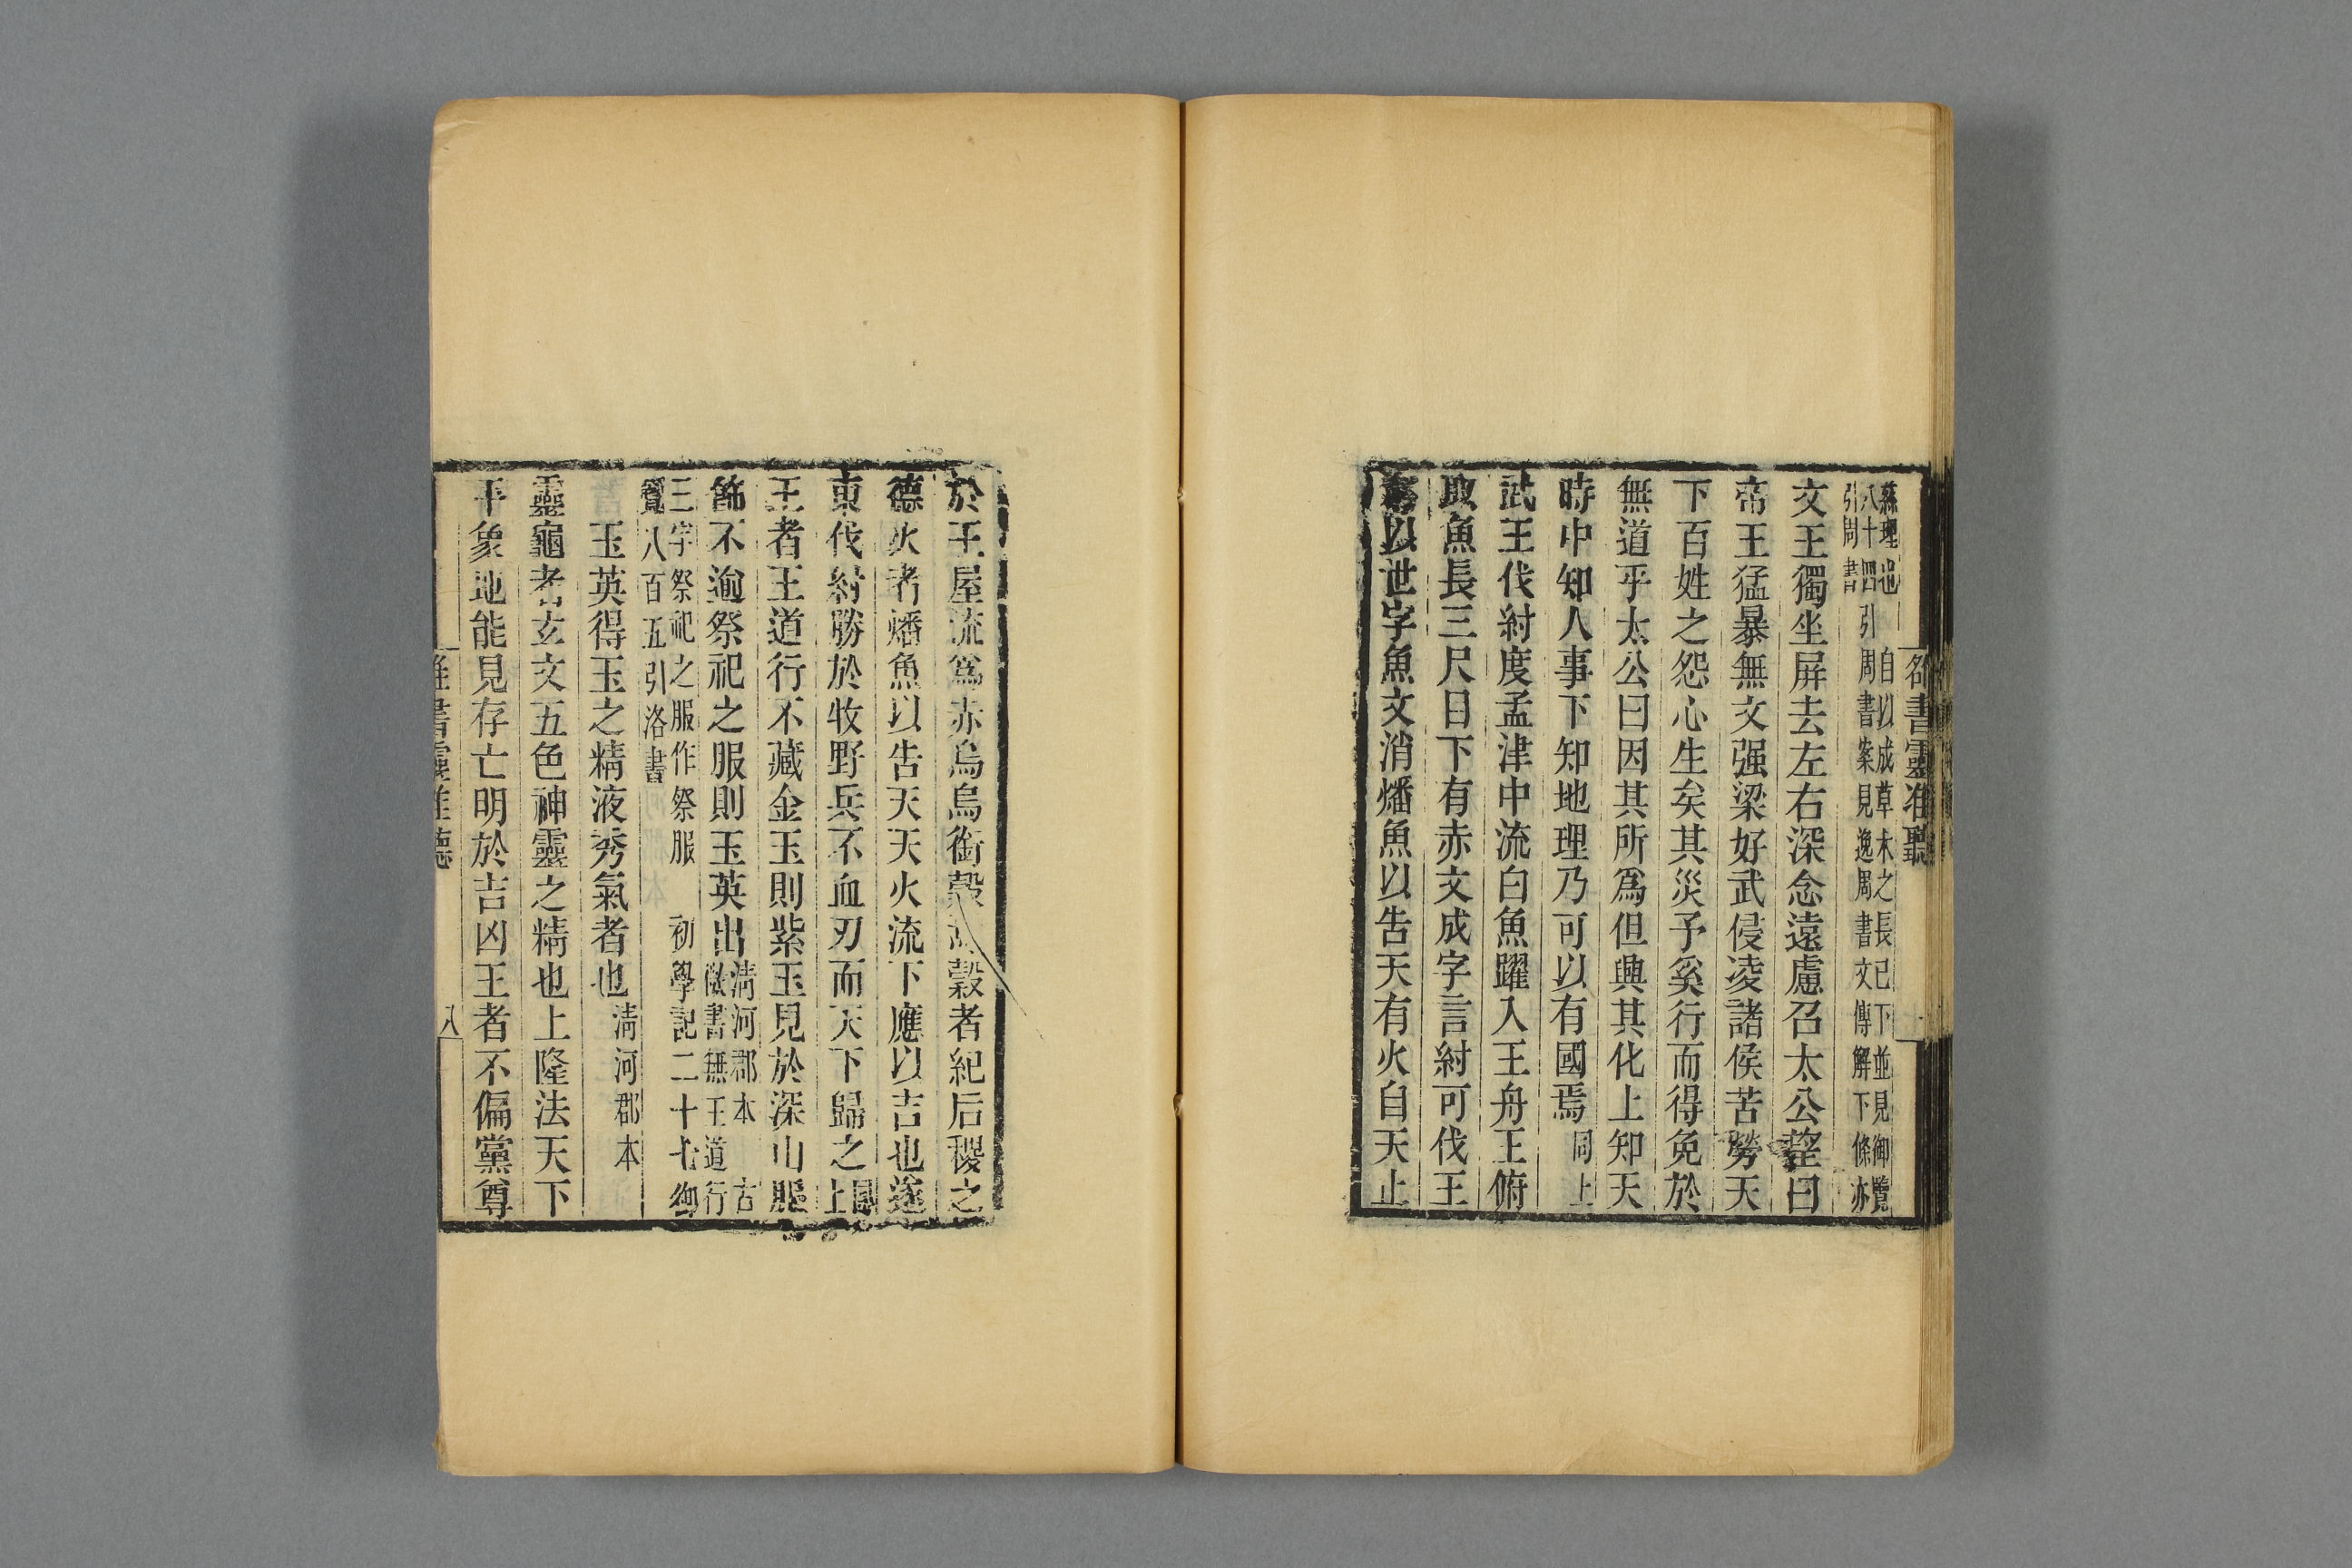 緜理也 自以成草木之長已下並見御覽
八十四引周書案見逸周書文傳解下條亦
引周書
文王獨坐屏去左右深念遠慮召太公望曰
帝王猛暴無文强梁好武侵凌諸侯苦勞天
下百姓之怨心生矣其災予奚行而得免於
無道乎太公曰因其所爲但興其化上知天
時中知人事下知地理乃可以有國焉同上
武王伐紂度孟津中流白魚躍入王舟王俯
取魚長三尺目下有赤文成字言紂可伐王
寫以世字魚文消燔魚以告天有火自天止
於王屋流爲赤烏烏銜穀焉穀者紀后稷之
德火者燔魚以告天天火流下應以吉也遂
東伐紂勝於牧野兵不血刃而天下歸之同上
王者王道行不藏金玉則紫玉見於深山服
飾不逾祭祀之服則玉英出清河郡本 古
微書無王道行
三字祭祀之服作祭服 初學記二十七御
覽八百五引洛書
玉英得玉之精液秀氣者也清河郡本
靈龜者玄文五色神靈之精也上隆法天下
平象地能見存亡明於吉凶王者不偏黨尊
雒書靈准聽
八